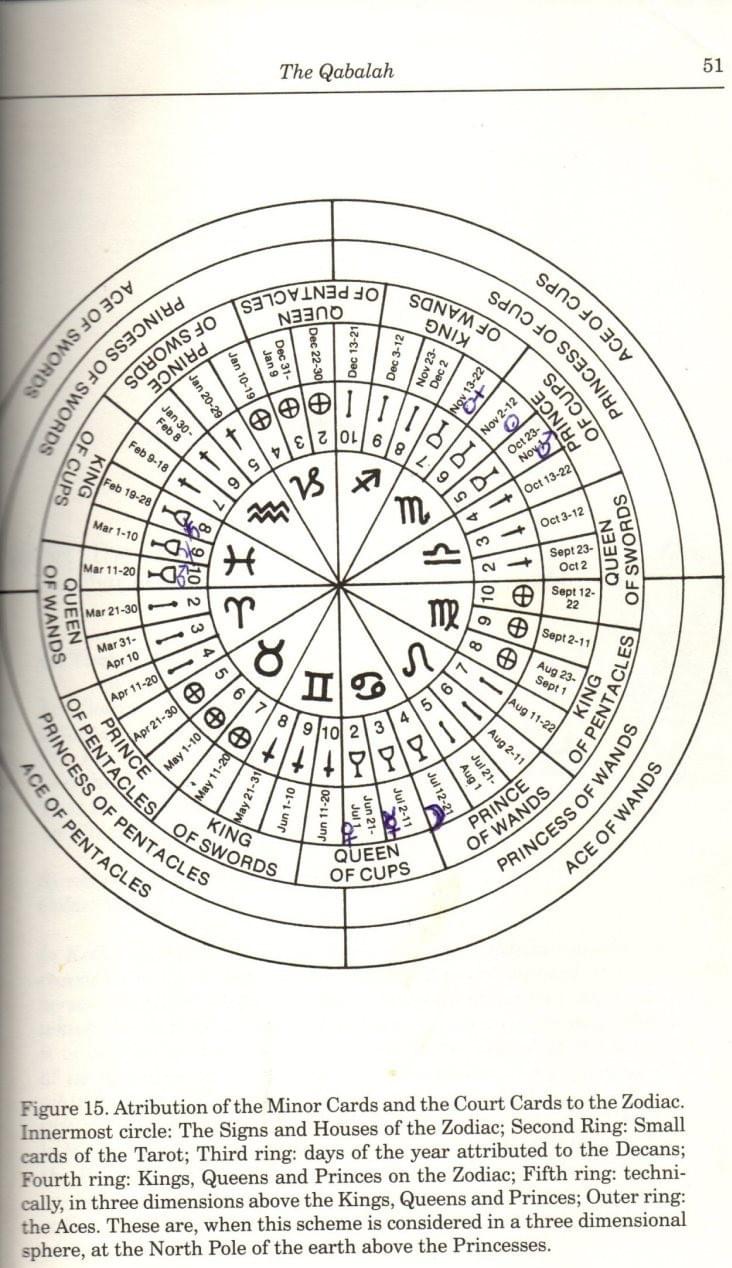 The Qabalah
51
ACE OF CUPS
PRINCESS OF CUPS
PRINCE
OF CUPS
KING
OF WANDS
QUEEN
OF PENTACLES
PRINCE
OF SWORDS
PRINCESS OF SWORDS
ACE OF SWORDS
KING
OF CUPS
QUEEN
OF WANDS
PRINCE
OF PENTACLES
PRINCESS OF PENTACLES
ACE OF PENTACLES
KING
OF SWORDS
QUEEN
OF CUPS
PRINCE
OF WANDS
PRINCESS OF WANDS
ACE OF WANDS
KING
OF PENTACLES
QUEEN
OF SWORDS
Mar 21-30
Mar 31-
Apr 10
Apr 11-20
Apr 21-30
May 1-10
May 11-20
May 21-31
Jun 1-10
Jun 11-20
Jun 21-
Jul 1
Jul 2-11
Jul 12-21
Jul 21-
Aug 1
Aug 2-11
Aug 11-22
Aug 23-
Sept 1
Sept 2-11
Sept 12-
22
Sept 23-
Oct 2
Oct 3-12
Oct 13-22
Oct 23-
Nov
Nov 2-12
Nov 13-22
Nov 23-
Dec 2
Dec 3-12
Dec 13-21
Dec 22-30
Dec 31-
Jan 9
Jan 10-19
Jan 20-29
Jan 30-
Feb 8
Feb 9-18
Feb 19-28
Mar 1-10
Mar 11-20
2
3
4
5
6
7
8
9
10
2
3
4
5
6
7
8
9
10
2
3
4
5
6
7
8
9
10
2
3
4
5
6
7
8
9
10
♈
♉
♊
♋
♌
♍
♎
♏
♐
♑
♒
♓
Figure 15. Atribution of the Minor Cards and the Court Cards to the Zodiac.
Innermost circle: The Signs and Houses of the Zodiac; Second Ring: Small
cards of the Tarot; Third ring: days of the year attributed to the Decans;
Fourth ring: Kings, Queens and Princes on the Zodiac; Fifth ring: techni-
cally, in three dimensions above the Kings, Queens and Princes; Outer ring:
the Aces. These are, when this scheme is considered in a three dimensional
sphere, at the North Pole of the earth above the Princesses.